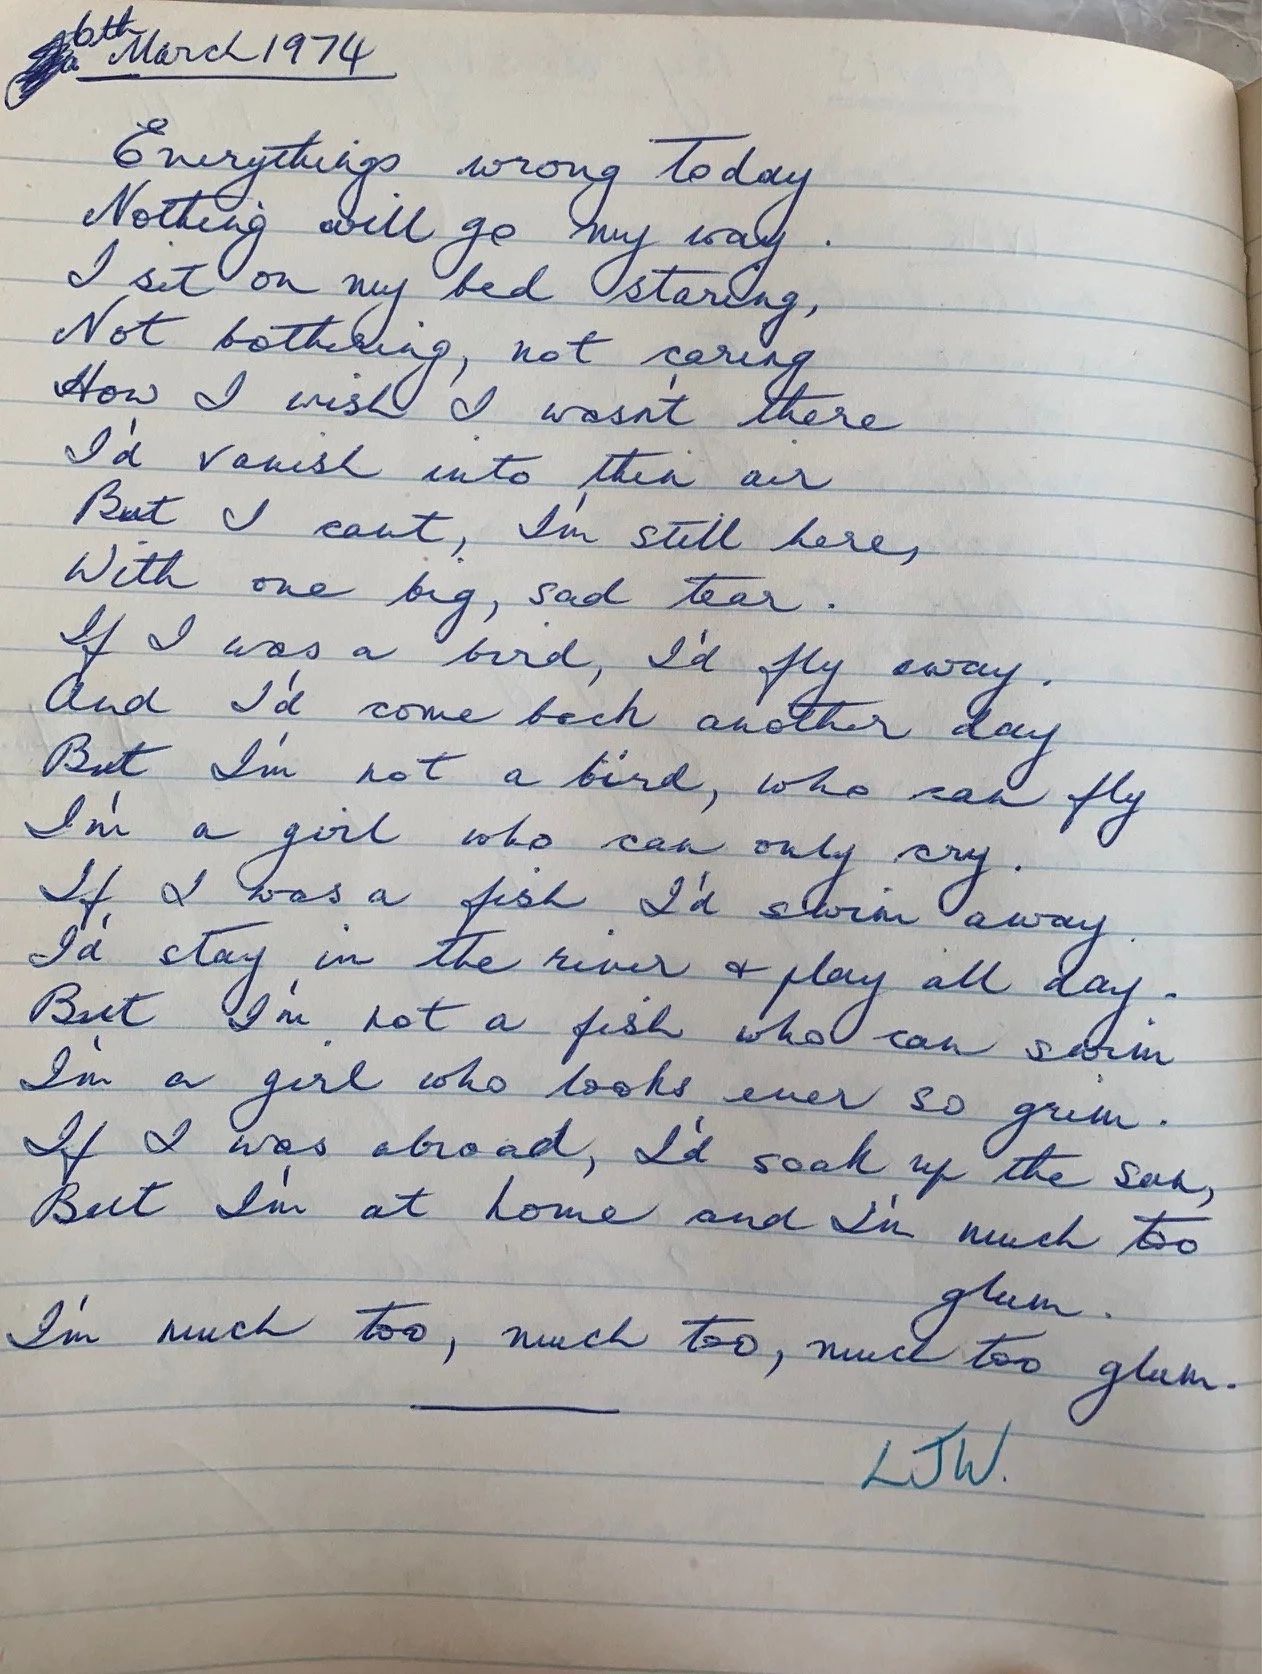 6th March 1974
Everythings wrong today
Nothing will go my way.
I sit on my bed staring,
Not bothering, not caring
How I wish I wasn't there
I'd vanish into thin air
But I cant, I'm still here,
With one big, sad tear.
If I was a bird, I'd fly away.
And I'd come back another day
But I'm not a bird, who can fly
I'm a girl who can only cry.
If I was a fish I'd swim away.
I'd stay in the river & play all day.
But I'm not a fish who can swim
I'm a girl who looks ever so grim.
If I was abroad, I'd soak up the sun,
But I'm at home and I'm much too
glum.
I'm much too, much too, much too glum.
LJW.